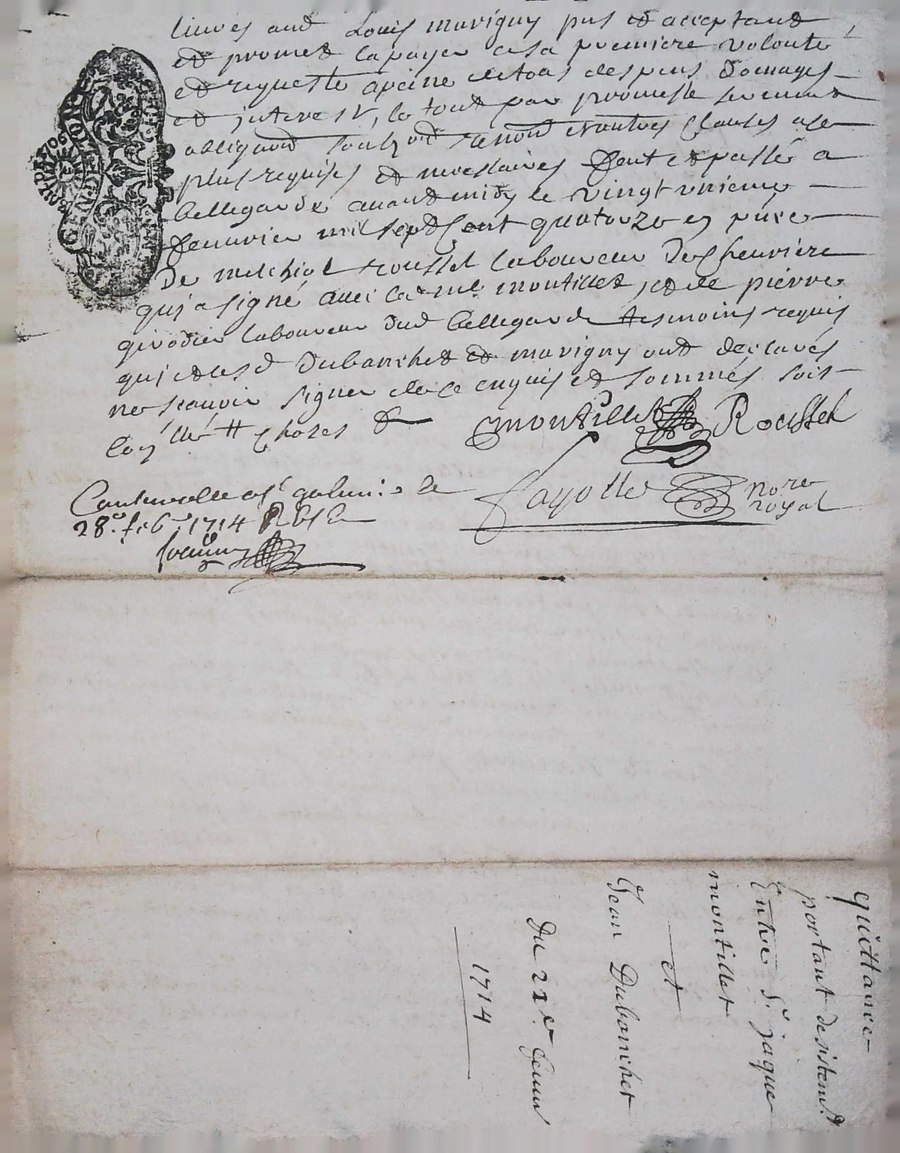 livres aud Louis mavigny pnt et acceptant
et promet la payer a sa premiere volonté
et requeste a peine de tous despens domages
et interest, le tout par promesse serement
obligaon soubzon renon et autres clauses a ce
plus requises et necessaires fait et passé a
bellegarde avant midy le vingt unieme
Janvier mil sept Cent quatorze en pnce
De melchiol roussel laboureur de Chevriere
qui a signé avec led mr montillet, et de pierre
girodier laboureur dud bellegarde tesmoins requis
qui et lesd Dubanchet et mavigny ont declarés
ne scavoir signer de ce enquis et sommés
Montillet Roussel
Fayolle nore
royal
a st galmier le
28e feb 1714 R
quittance
portant desistemt
Entre Sr jaque
montillet
et
Jean Dubanchet
Du 21e Janv
1714
GENERATION